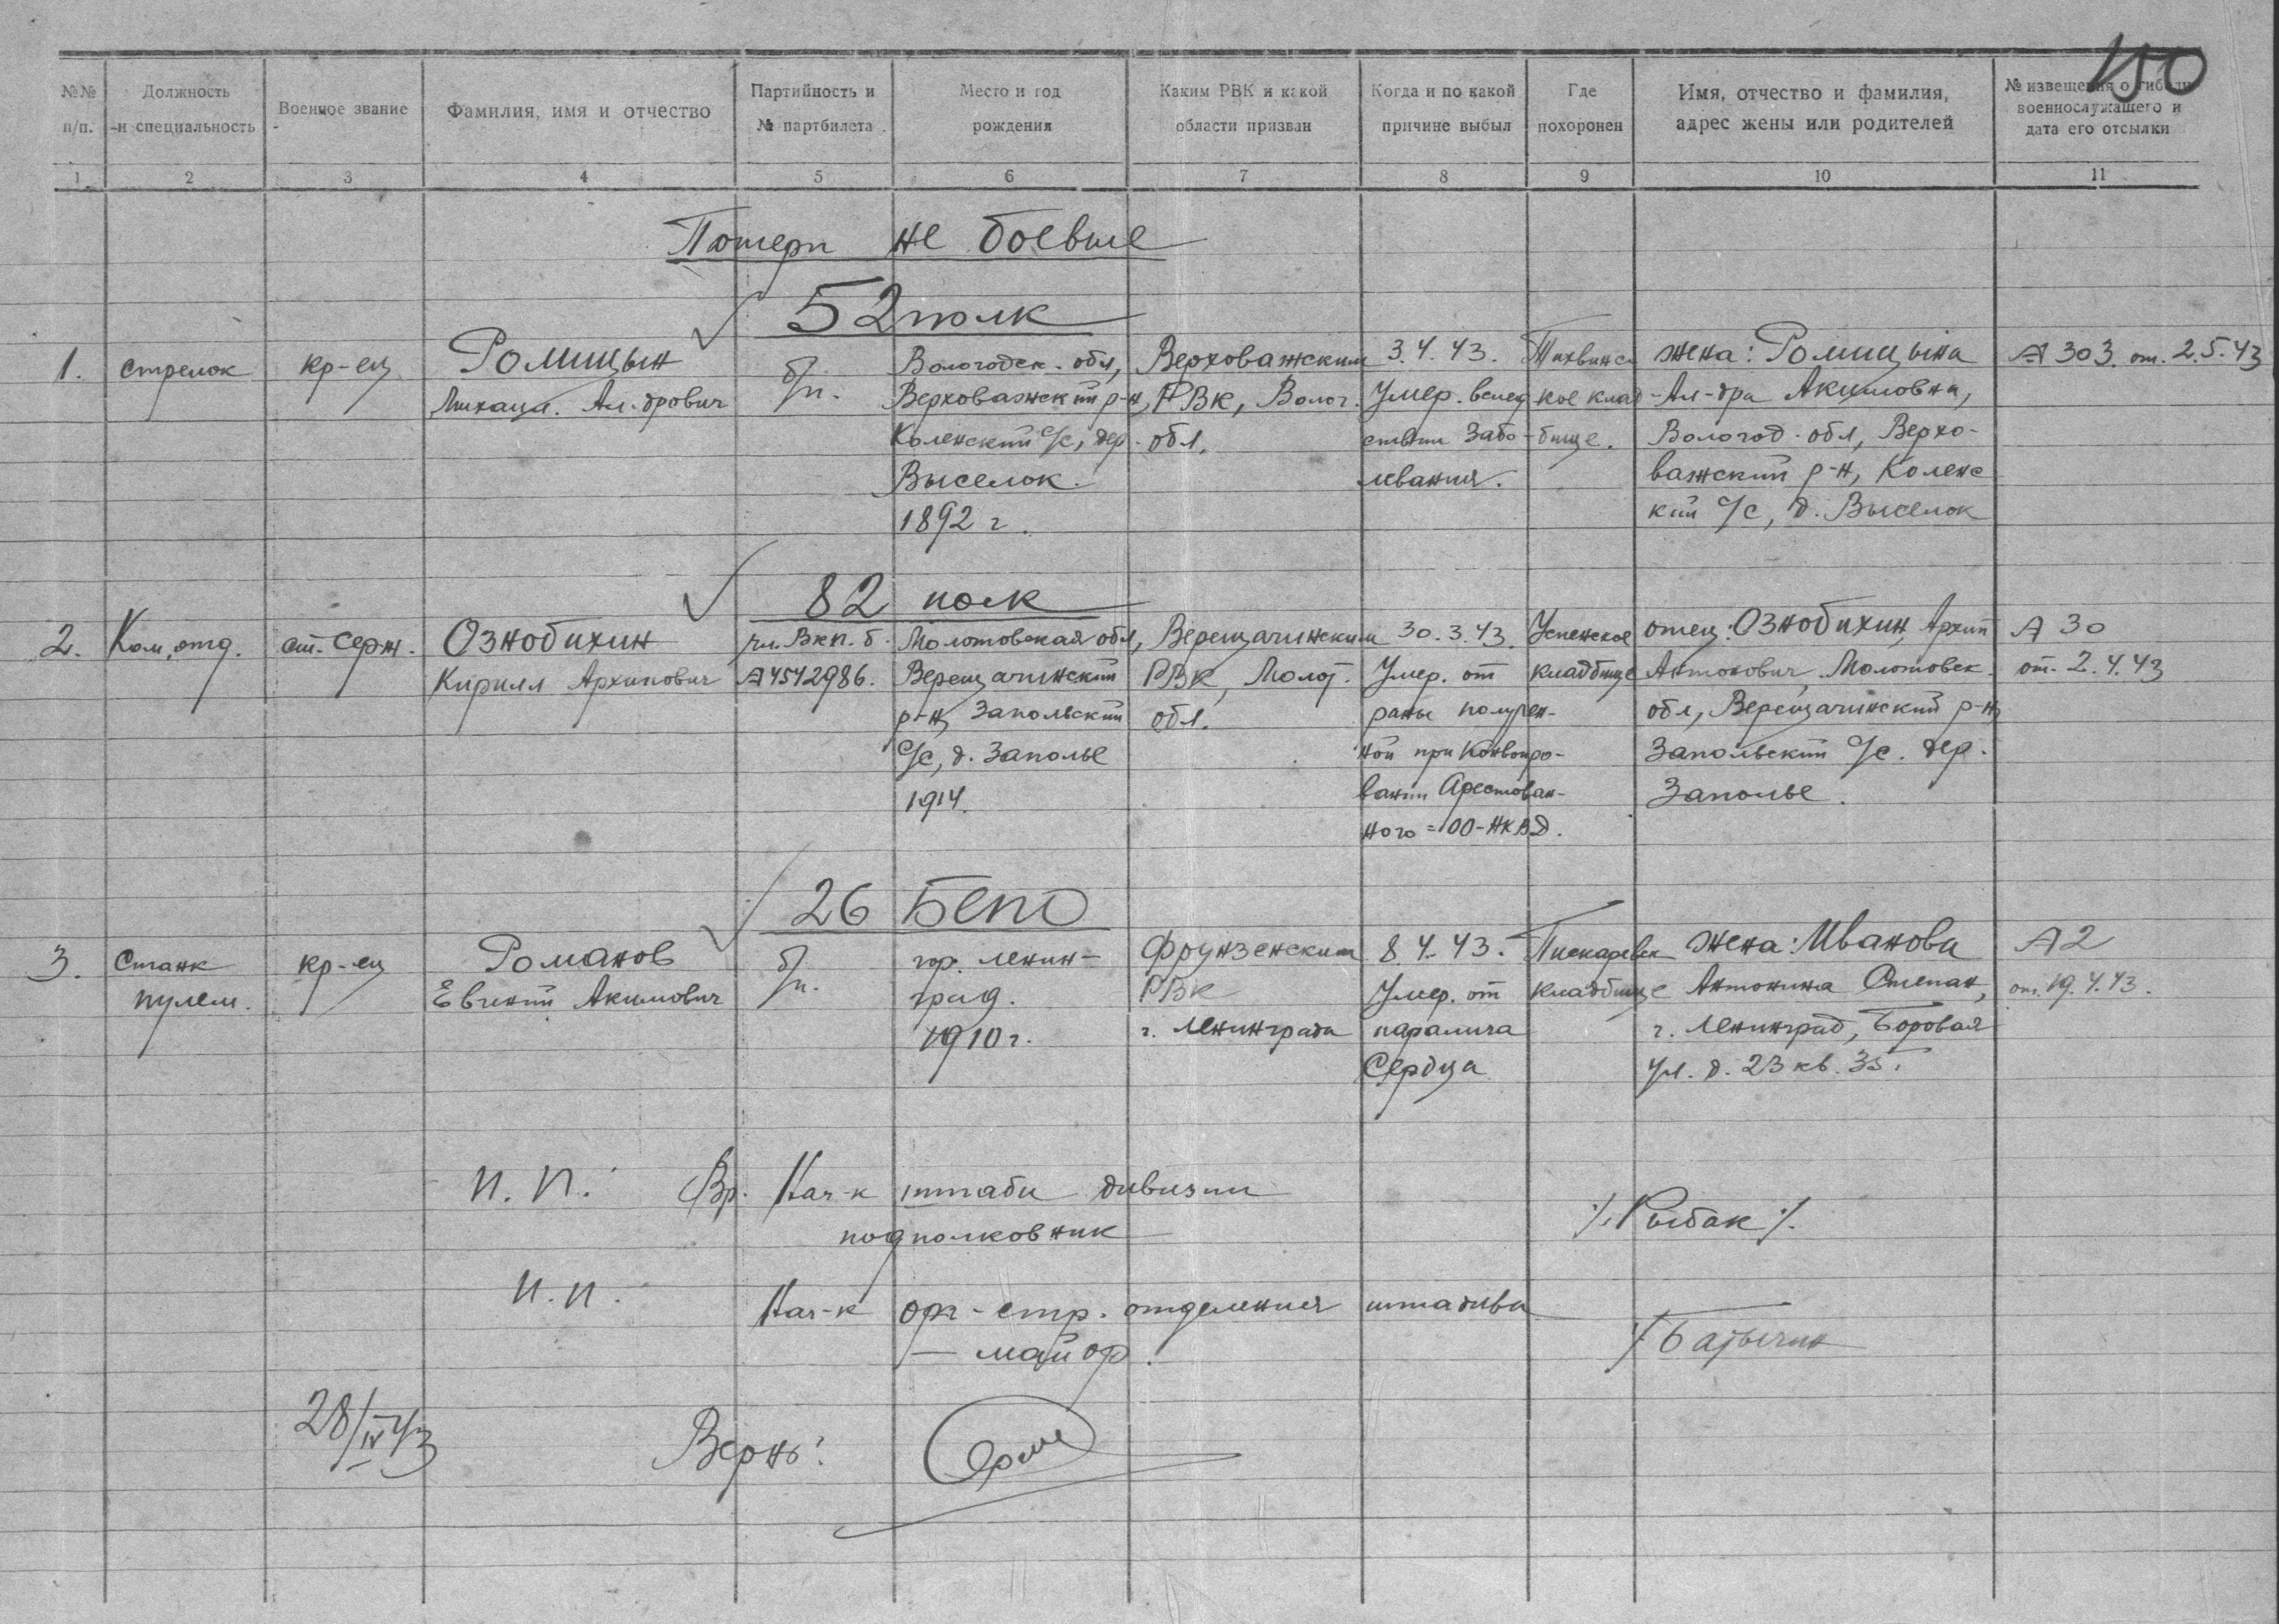 150
№№ п/п.
Должность и специальность
Военное звание
Фамилия, имя и отчество
Партийность и № партбилета
Место и год рождения
Каким РВК и какой области призван
Когда и по какой причине выбыл
Где похоронен
Имя, отчество и фамилия, адрес жены или родителей
№ извещения о гибели военнослужащего и дата его отсылки
1 2 3 4 5 6 7 8 9 10 11
Потери не боевые
52 полк
1. стрелок кр-ец Ромицын б/п. Вологодск. обл, Верховажским 3.4.43. Тихвинс жена: Ромицына А 303. от. 2.5.43
Михаил. Ал-дрович Верховажский р-н, РВК, Волог. Умер. вслед кое клад Ал-дра Акимовна,
Коленский с/с, дер. обл. ствии забо- бище. Вологод. обл, Верхо-
Выселок. левания. важский р-н, Коленс
1892 г. кий с/с, д. Выселок
82 полк
2. Ком. отд. ст. серж. Ознобихин чл. Вкп. б. Молотовская обл, Верещагинским 30.3.43. Успенское отец: Ознобихин, Архип А 30
Кирилл Архипович А4542986. Верещагинский РВК, Молот. Умер. от кладбище Антонович. Молотовск. от. 2.4.43
р-н, Запольский обл. раны получен- обл, Верещагинский р-н,
с/с, д. Заполье ной при конвоиро- Запольский с/с. дер.
1914. вании Арестован- Заполье.
ного = ОО-НКВД.
26 БЕПО
3. Станк кр-ец Романов б/п. гор. Ленин- Фрунзенским 8.4.43. Пискаревск жена: Иванова А 2
пулем. Евгений Акимович град. РВК Умер. от кладбище Антонина Степан, от. 19.4.43.
1910 г. г. Ленинграда паралича г. Ленинград, Боровая
Сердца ул. д. 23 кв. 35.
п. п. Вр. Нач-к штаба дивизии
подполковник /Рыбак/.
п. п. Нач-к орг-стр. отделения штадива
— майор.
28/IV 43 Верно: